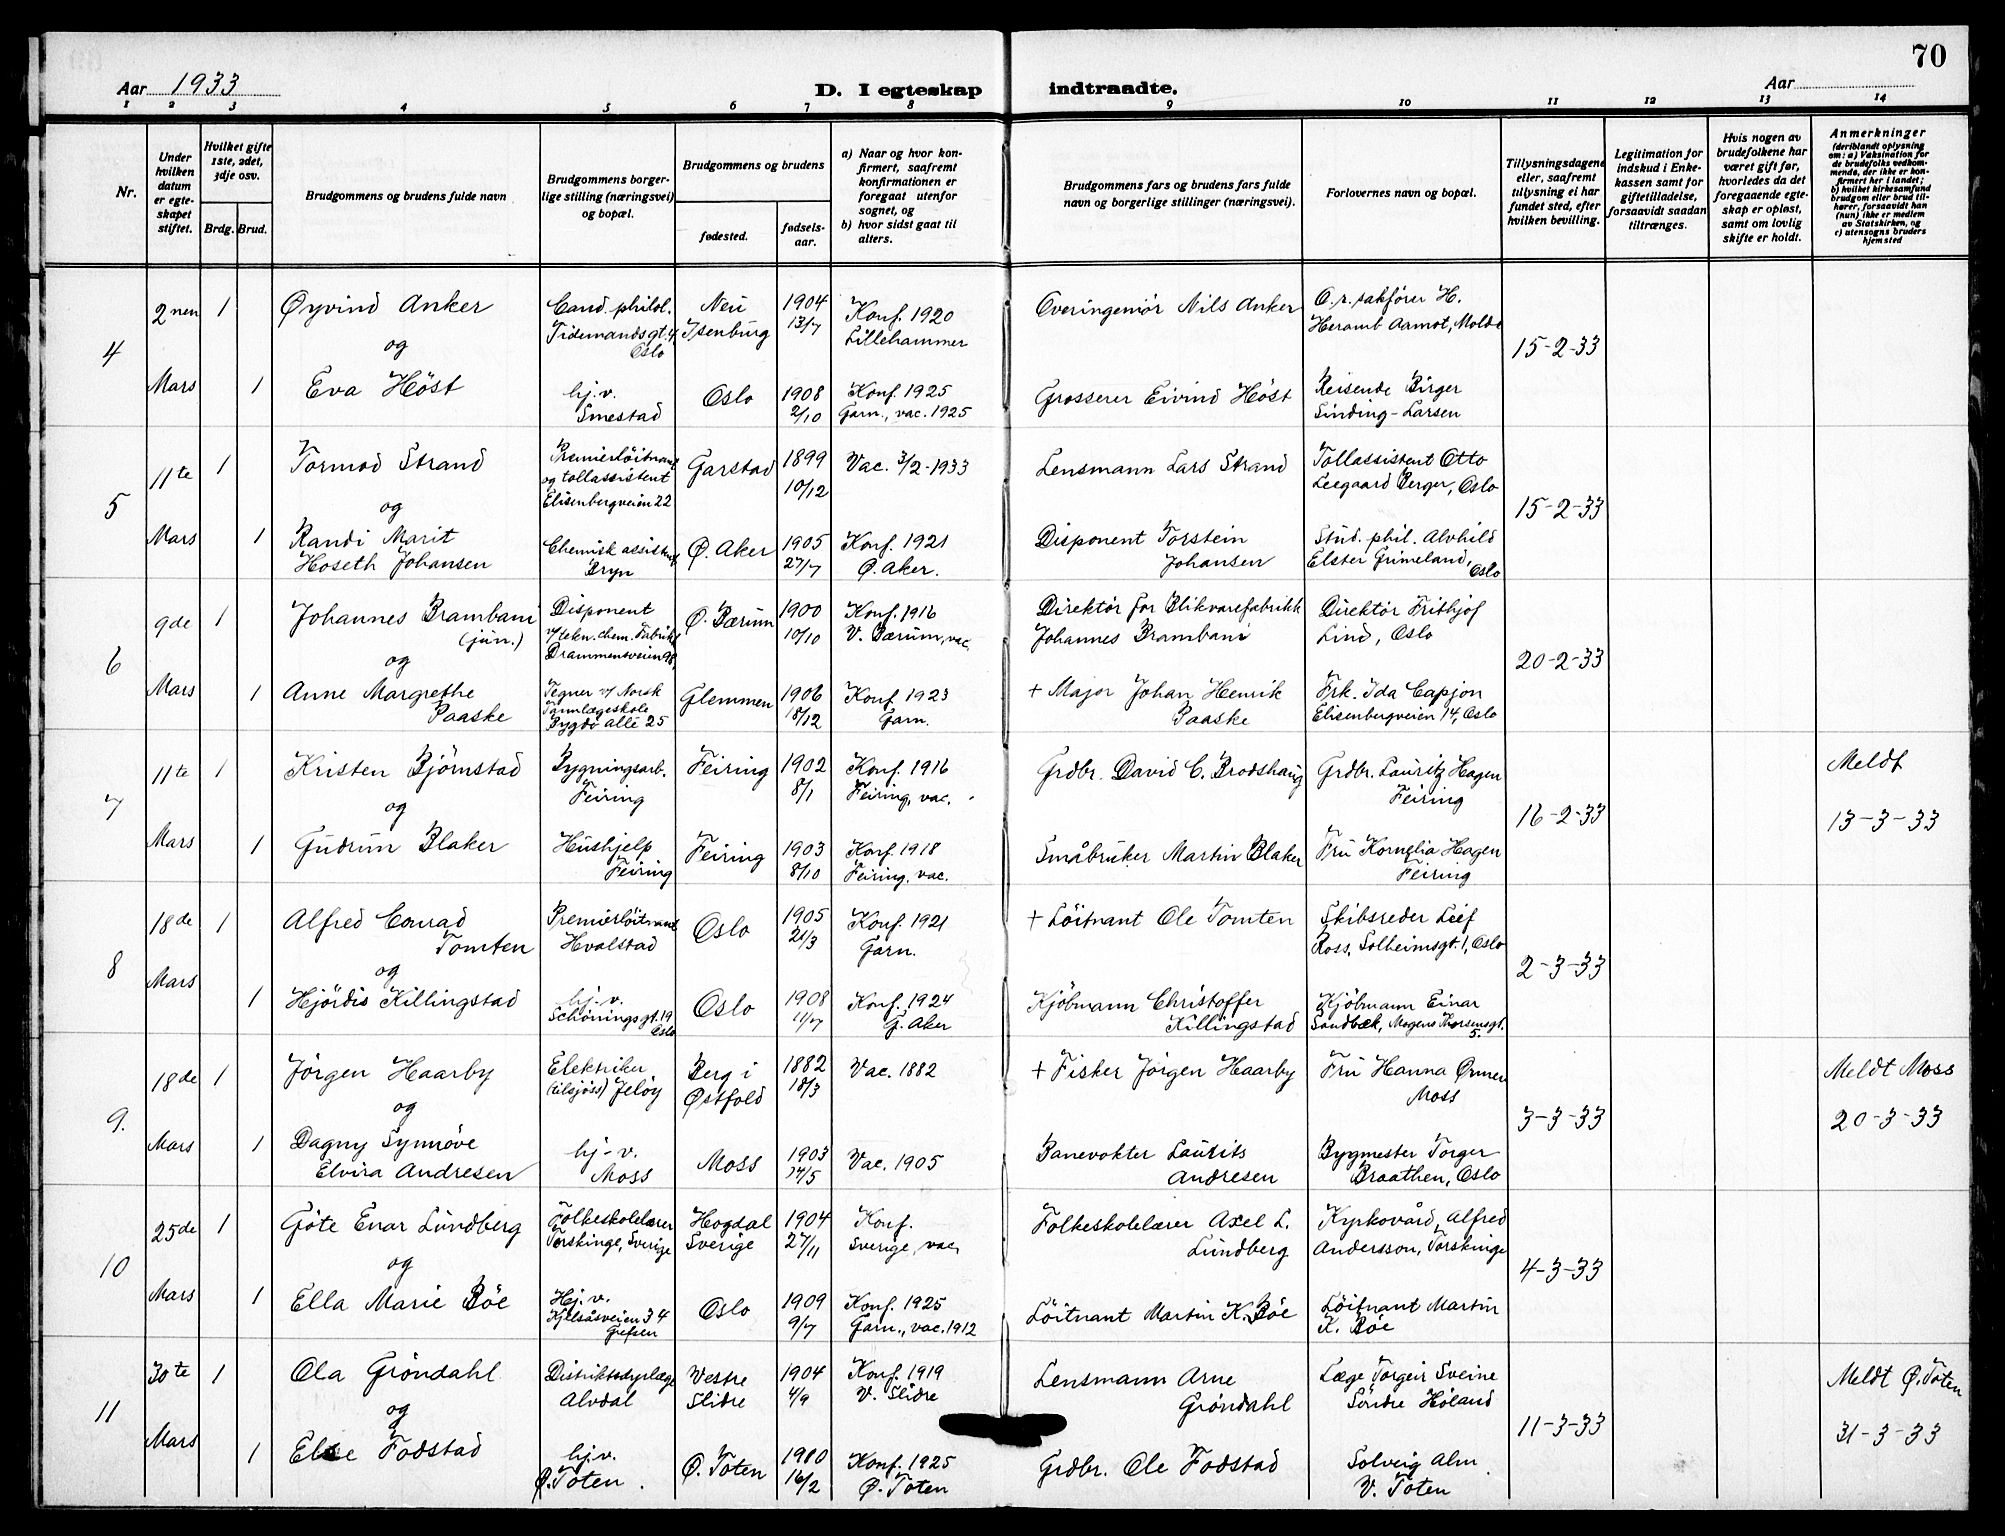 70
Aar 1933
D. I egteskap indtraadte.
Aar
1 2 3 4 5 6 7 8 9 10 11 12 13 14
Nr.
Under hvilken datum er egteskapet stiftet.
Hvilket gifte 1ste, 2det, 3dje osv.
Brdg. Brud.
Brudgommens og brudens fulde navn
Brudgommens borgerlige stilling (næringsvei) og bopæl.
Brudgommens og brudens
fødested.
fødselsaar.
a) Naar og hvor konfirmert, saafremt konfirmationen er foregaat utenfor sognet, og
b) hvor sidst gaat til alters.
Brudgommens fars og brudens fars fulde navn og borgerlige stillinger (næringsvei).
Forlovernes navn og bopæl.
Tillysningsdagene eller, saafremt tillysning ei har fundet sted, efter hvilken bevilling.
Legitimation for indskud i Enkekassen samt for giftetilladelse, forsaavidt saadan tiltrænges.
Hvis nogen av brudefolkene har været gift før, hvorledes da det foregaaende egteskap er opløst, samt om lovlig skifte er holdt.
Anmerkninger (deriblandt oplysning om: a) Vaksination for de brudefolks vedkommende, der ikke er konfirmert her i landet; b) hvilket kirkesamfund brudgom eller brud tilhører, forsaavidt han (hun) ikke er medlem av Statskirken, og c) utensogns bruders hjemsted
4
2nen Mars
1
Øyvind Anker
Cand. philol.
Tidemandsgt. 4
Oslo
Neu
Isenburg
1904
13/7
Konf. 1920
Lillehammer
Overingeniør Nils Anker
O.r. sakfører H.
Heramb Aamot, Molde
15-2-33
og
1
Eva Høst
hj.v.
Smestad
Oslo
1908
2/10
Konf. 1925
Garn., vac. 1925
Grosserer Eivind Høst
Reisende Birger
Sinding-Larsen
5
11te Mars
1
Tormod Strand
Premierløitnant
og tollassistent
Elisenbergveien 22
Garstad
1899
10/12
Vac. 3/2-1933
Lensmann Lars Strand
Tollassistent Otto
Leegaard Berger, Oslo
15-2-33
og
1
Randi Marit
Hoseth Johansen
Chemisk assistent
Bryn
Ø. Aker
1905
27/7
Konf. 1921
Ø. Aker.
Disponent Torstein
Johansen
Stud. phil. Alvhild
Elster Grimeland,
Oslo
6
9de Mars
1
Johannes Brambani
(jun.)
Disponent
v/tekn. chem. Fabrikk
Drammensveien 98
Ø. Bærum
1900
10/10
Konf. 1916
V. Bærum, vac.
Direktør for Blikvarefabrikk
Johannes Brambani
Direktør Frithjof
Lind, Oslo
20-2-33
og
1
Anne Margrethe
Paaske
Tegner v/ Norsk
Tannlægeskole
Bygdø alle 25
Glemmen
1906
18/12
Konf. 1923
Garn.
+ Major Johan Henrik
Paaske
Frk. Ida Capjon
Elisenbergveien 14, Oslo
7
11te Mars
1
Kristen Bjørnstad
Bygningsarb.
Feiring
Feiring
1902
8/1
Konf. 1916
Feiring, vac.
Grdbr. David C. Brodshaug
Grdbr. Lauritz Hagen
Feiring
16-2-33
Meldt
13-3-33
og
1
Gudrun Blaker
Hushjelp
Feiring
Feiring
1903
8/10
Konf. 1918
Feiring, vac.
Småbruker Martin Blaker
Fru Kornelia Hagen
Feiring
8
18de Mars
1
Alfred Conrad
Tomten
Premierløitnant
Hvalstad
Oslo
1905
21/3
Konf. 1921
Garn.
+ Løitnant Ole Tomten
Skibsreder Leif
Ross, Solheimsgt. 1, Oslo
2-3-33
og
1
Hjördis Killingstad
hj.v.
Schøningsgt. 19
Oslo
Oslo
1908
11/7
Konf. 1924
G. Aker
Kjøbmann Christoffer
Killingstad
Kjøbmann Einar
Sandbæk, Mogens Thorsensgt.
5.
9.
18de Mars
1
Jörgen Haarby
Elektriker
(utsjøs) Jeløy
Berg i
Østfold
1882
18/3
Vac. 1882
+ Fisker Jörgen Haarby
Fru Hanna Ørmen
Moss
3-3-33
Meldt Moss
20-3-33
og
1
Dagny Synnøve
Elvira Andresen
hj-v.
Moss
Moss
1903
14/5
Vac. 1905
Banevokter Laurits
Andresen
Bygmester Torger
Braathen, Oslo
10
25de Mars
1
Göte Enar Lundberg
Folkeskolelærer
Torskinge, Sverige
Hogdal
Sverige
1904
27/11
Konf.
Sverige, vac.
Folkeskolelærer Axel L.
Lundberg
Kyrkovård, Alfred
Andersson, Torskinge
4-3-33
og
1
Ella Marie Bøe
Hj.v.
Kjelsåsveien 34
Grefsen
Oslo
1909
9/7
Konf. 1925
Garn., vac. 1912
Löitnant Martin K. Bøe
Löitnant Martin
K. Bøe
11
30te Mars
1
Ola Gröndahl
Distriktsdyrlæge
Alvdal
Vestre
Slidre
1904
4/9
Konf. 1919
V. Slidre
Lensmann Arne
Gröndahl
Læge Torgeir Sveine
Söndre Høland
11-3-33
Meldt Ø. Toten
31-3-33
og
1
Else Fodstad
hj.v.
Ø. Toten.
Ø. Toten
1980
16/2
Konf. 1925
Ø. Toten
Grdbr. Ole Fodstad
Solveig Alm
V. Toten